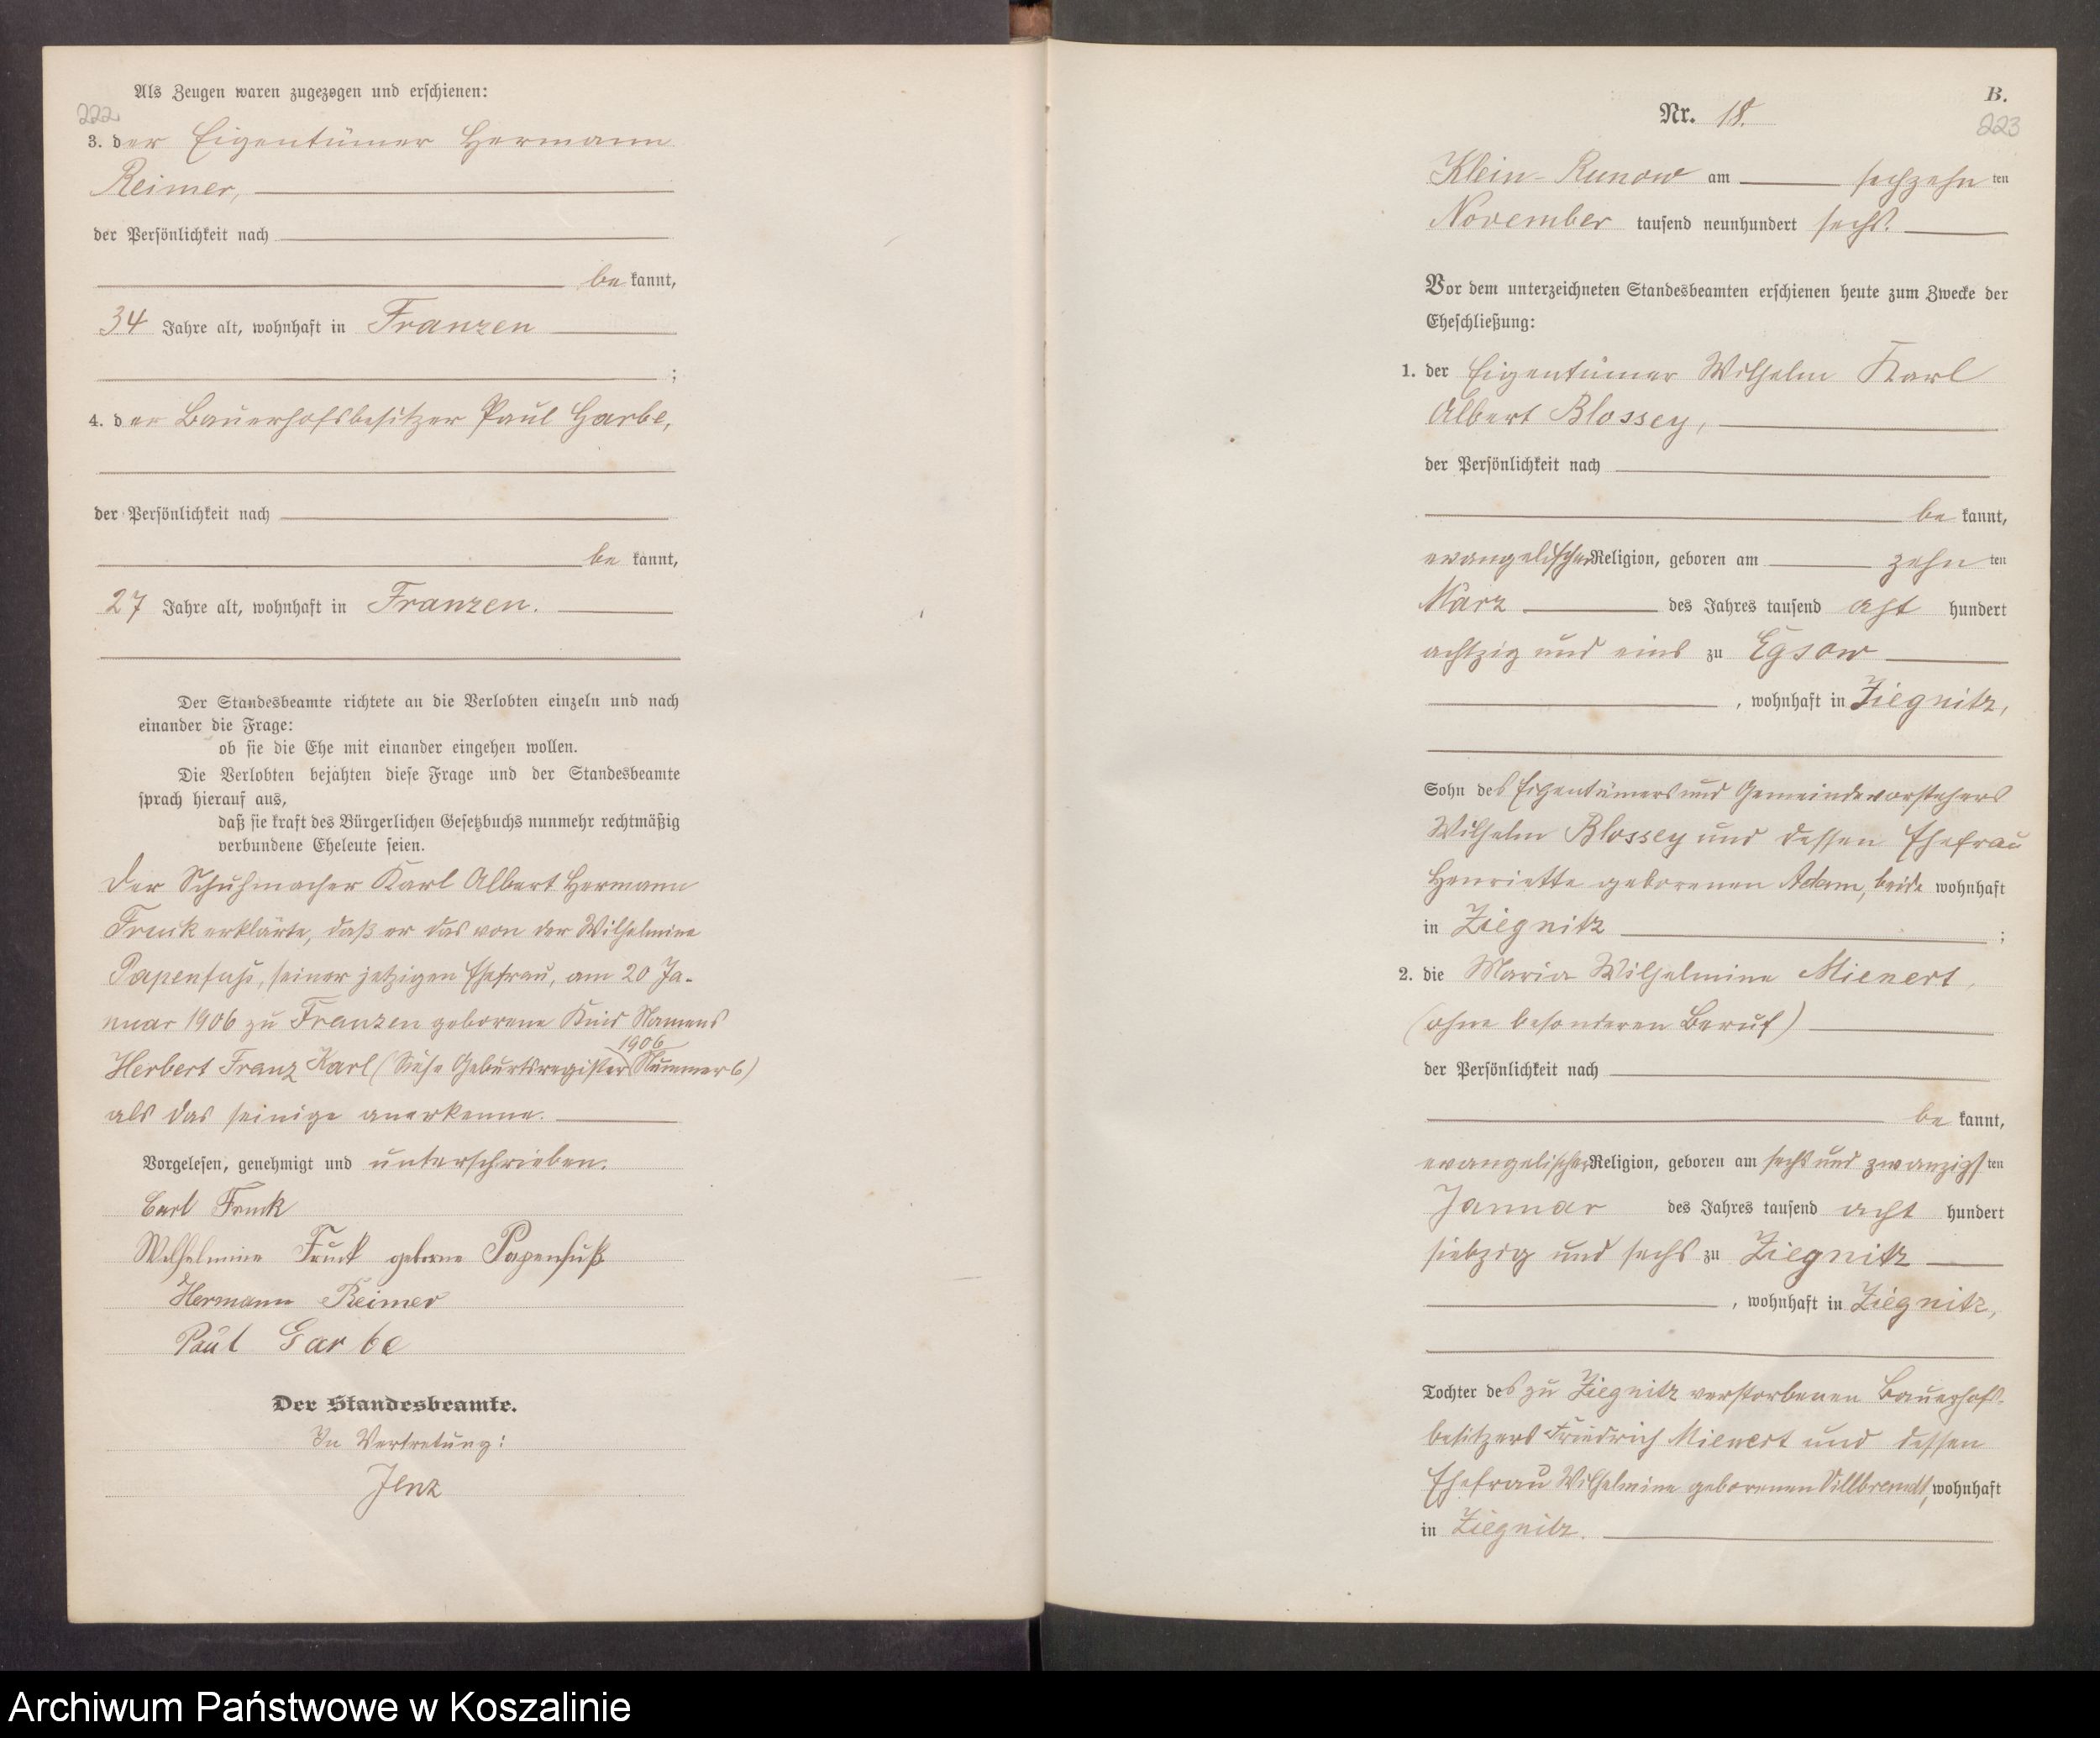 Als Zeugen waren zugezogen und erschienen:
222
3. der Eigentümer Hermann
Reimer,
der Persönlichkeit nach
be kannt,
34 Jahre alt, wohnhaft in Franzen
;
4. der Bauerhofsbesitzer Paul Garbe,
der Persönlichkeit nach
be kannt,
27 Jahre alt, wohnhaft in Franzen.
Der Standesbeamte richtete an die Verlobten einzeln und nach
einander die Frage:
ob sie die Ehe mit einander eingehen wollen.
Die Verlobten bejahten diese Frage und der Standesbeamte
sprach hierauf aus,
daß sie kraft des Bürgerlichen Gesetzbuchs nunmehr rechtmäßig
verbundene Eheleute seien.
Der Schuhmacher Karl Albert Hermann
Fruck erklärte, daß er das von der Wilhelmine
Papenfuß, seiner jetzigen Ehefrau, am 20 Ja-
nuar 1906 zu Franzen geborene Kind Namens
1906
Herbert Franz Karl (Siehe Geburtsregister Nummer 6)
als das seinige anerkenne.
Vorgelesen, genehmigt und unterschrieben.
Carl Fruck
Wilhelmine Fruck geborne Papenfuß
Hermann Reimer
Paul Garbe
Der Standesbeamte.
In Vertretung:
Jenz
B.
Nr. 18.
223
Klein-Runow am sechzehn ten
November tausend neunhundert sechs.
Vor dem unterzeichneten Standesbeamten erschienen heute zum Zwecke der
Eheschließung:
1. der Eigentümer Wilhelm Karl
Albert Blossey,
der Persönlichkeit nach
be kannt,
evangelischer Religion, geboren am zehn ten
März des Jahres tausend acht hundert
achtzig und eins zu Egsow
, wohnhaft in Ziegnitz,
Sohn des Eigentümers und Gemeindevorstehers
Wilhelm Blossey und dessen Ehefrau
Henriette geborenen Adam, beide wohnhaft
in Ziegnitz ;
2. die Maria Wilhelmine Mienert,
(ohne besonderen Beruf)
der Persönlichkeit nach
be kannt,
evangelischer Religion, geboren am sechs und zwanzigs ten
Januar des Jahres tausend acht hundert
siebzig und sechs zu Ziegnitz
, wohnhaft in Ziegnitz,
Tochter des zu Ziegnitz verstorbenen Bauerhofs-
besitzers Friedrich Mienert und dessen
Ehefrau Wilhelmine geborenen Villbrandt, wohnhaft
in Ziegnitz.
Archiwum Państwowe w Koszalinie